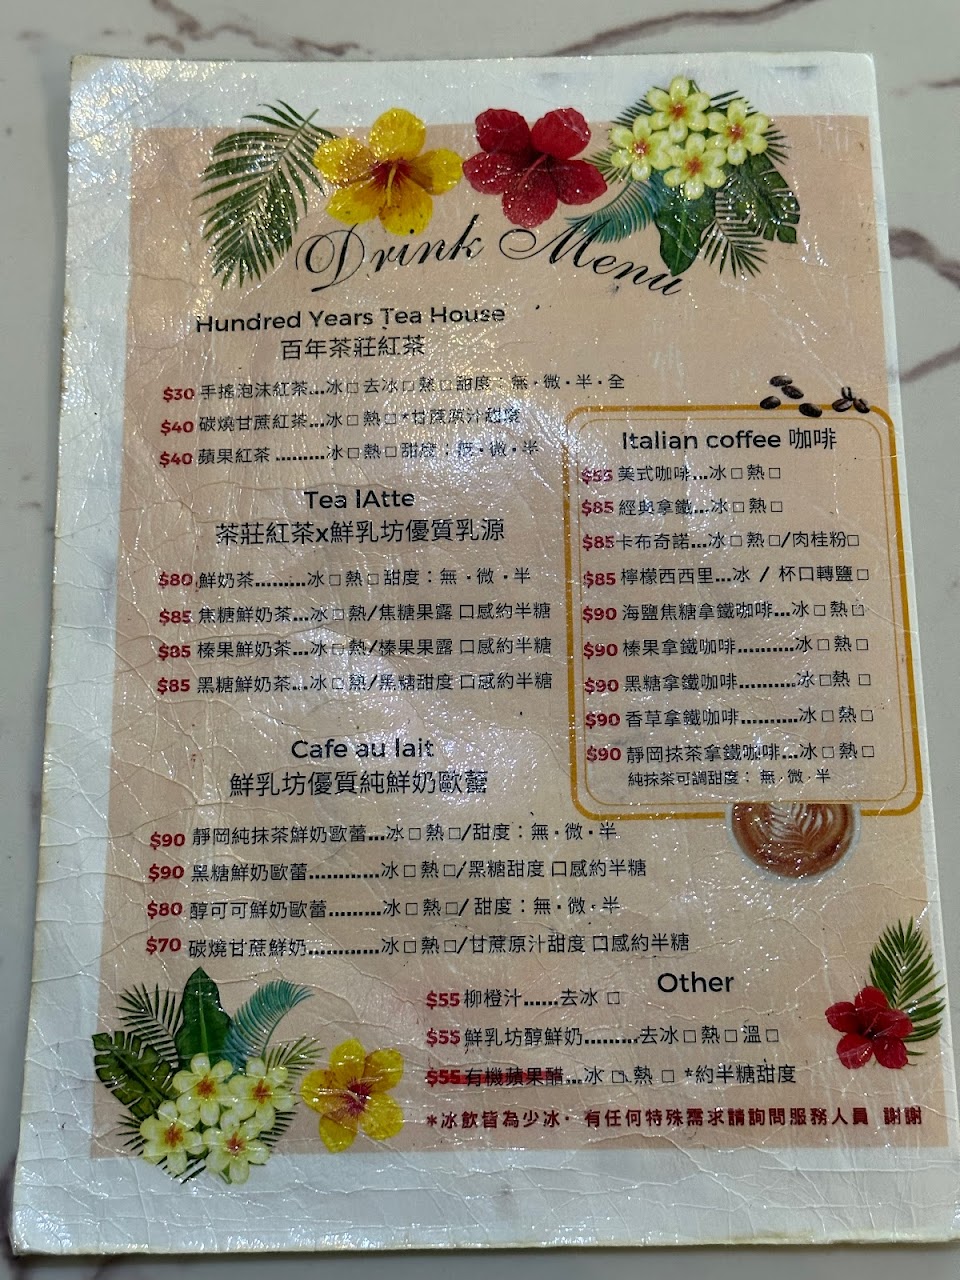 Drink Menu
Hundred Years Tea House
百年茶莊紅茶
$30 手搖泡沫紅茶...冰□去冰□熱□甜度：無·微·半·全
$40 碳燒甘蔗紅茶...冰□熱□*甘蔗原汁甜度
$40 蘋果紅茶.........冰□熱□甜度：無·微·半
Tea lAtte
茶莊紅茶x鮮乳坊優質乳源
$80 鮮奶茶.........冰□熱□甜度：無·微·半
$85 焦糖鮮奶茶...冰□熱/焦糖果露 口感約半糖
$85 榛果鮮奶茶...冰□熱/榛果果露 口感約半糖
$85 黑糖鮮奶茶...冰□熱/黑糖甜度 口感約半糖
Cafe au lait
鮮乳坊優質純鮮奶歐蕾
$90 靜岡純抹茶鮮奶歐蕾...冰□熱□/甜度：無·微·半
$90 黑糖鮮奶歐蕾............冰□熱□/黑糖甜度 口感約半糖
$80 醇可可鮮奶歐蕾.........冰□熱□/甜度：無·微·半
$70 碳燒甘蔗鮮奶............冰□熱□/甘蔗原汁甜度 口感約半糖
Italian coffee 咖啡
$55 美式咖啡...冰□熱□
$85 經典拿鐵...冰□熱□
$85 卡布奇諾...冰□熱□/肉桂粉□
$85 檸檬西西里...冰 / 杯口轉鹽□
$90 海鹽焦糖拿鐵咖啡...冰□熱□
$90 榛果拿鐵咖啡..........冰□熱□
$90 黑糖拿鐵咖啡..........冰□熱 □
$90 香草拿鐵咖啡..........冰□熱□
$90 靜岡抹茶拿鐵咖啡...冰□熱□
純抹茶可調甜度： 無·微·半
Other
$55 柳橙汁......去冰 □
$55 鮮乳坊醇鮮奶.........去冰□熱□溫□
$55 有機蘋果醋...冰 □熱 □ *約半糖甜度
*冰飲皆為少冰· 有任何特殊需求請詢問服務人員 謝謝